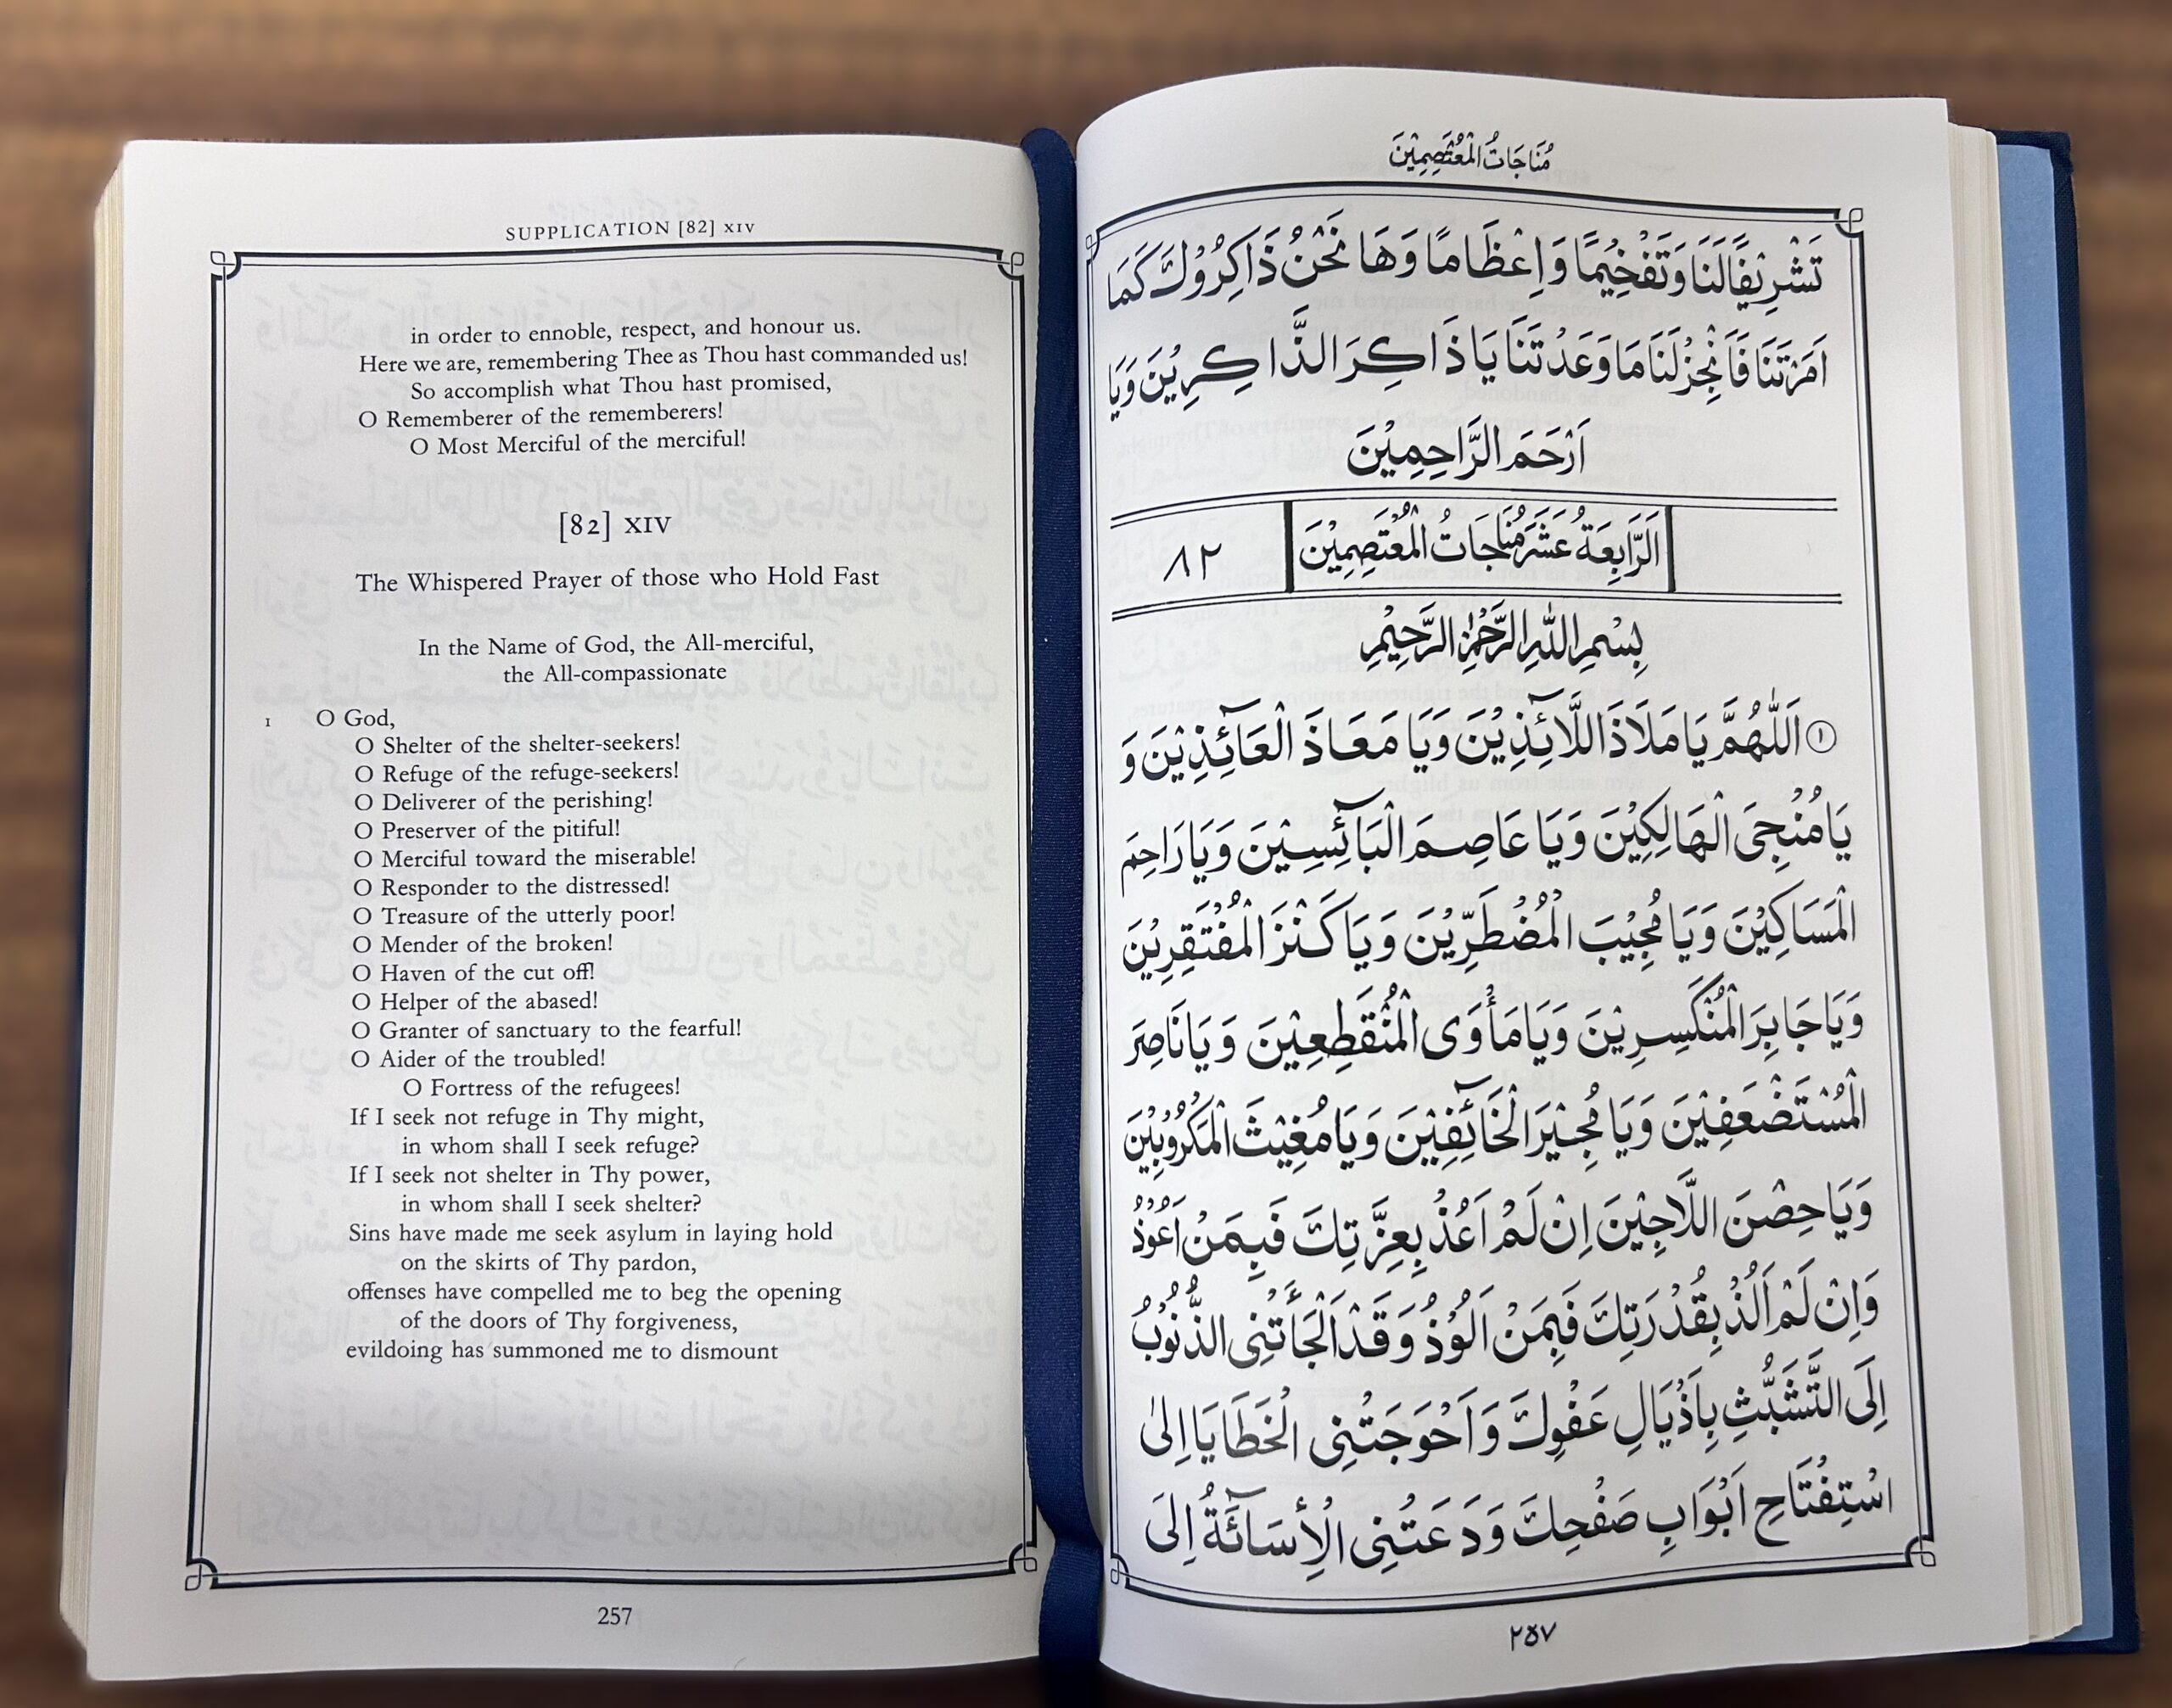 SUPPLICATION [82] XIV
in order to ennoble, respect, and honour us.
Here we are, remembering Thee as Thou hast commanded us!
So accomplish what Thou hast promised,
O Rememberer of the rememberers!
O Most Merciful of the merciful!
[82] XIV
The Whispered Prayer of those who Hold Fast
In the Name of God, the All-merciful,
the All-compassionate
1 O God,
O Shelter of the shelter-seekers!
O Refuge of the refuge-seekers!
O Deliverer of the perishing!
O Preserver of the pitiful!
O Merciful toward the miserable!
O Responder to the distressed!
O Treasure of the utterly poor!
O Mender of the broken!
O Haven of the cut off!
O Helper of the abased!
O Granter of sanctuary to the fearful!
O Aider of the troubled!
O Fortress of the refugees!
If I seek not refuge in Thy might,
in whom shall I seek refuge?
If I seek not shelter in Thy power,
in whom shall I seek shelter?
Sins have made me seek asylum in laying hold
on the skirts of Thy pardon,
offenses have compelled me to beg the opening
of the doors of Thy forgiveness,
evildoing has summoned me to dismount
257
مُنَاجَاتُ الْمُعْتَصِمِيْنَ
تَشْرِيْفًا لَنَا وَتَفْخِيْمًا وَاِعْظَامًا وَهَا نَحْنُ ذَاكِرُوْكَ كَمَا
اَمَرْتَنَا فَاَنْجِزْ لَنَا مَا وَعَدْتَنَا يَا ذَاكِرَ الذَّاكِرِيْنَ وَيَا
اَرْحَمَ الرَّاحِمِيْنَ
اَلرَّابِعَةُ عَشَرَ مُنَاجَاتُ الْمُعْتَصِمِيْنَ ٨٢
بِسْمِ اللهِ الرَّحْمٰنِ الرَّحِيْمِ
١ اَللّٰهُمَّ يَا مَلَاذَ اللَّائِذِيْنَ وَيَا مَعَاذَ الْعَائِذِيْنَ وَ
يَا مُنْجِىَ الْهَالِكِيْنَ وَيَا عَاصِمَ الْبَائِسِيْنَ وَيَا رَاحِمَ
الْمَسَاكِيْنَ وَيَا مُجِيْبَ الْمُضْطَرِّيْنَ وَيَا كَنْزَ الْمُفْتَقِرِيْنَ
وَيَا جَابِرَ الْمُنْكَسِرِيْنَ وَيَا مَأْوَى الْمُنْقَطِعِيْنَ وَيَا نَاصِرَ
الْمُسْتَضْعَفِيْنَ وَيَا مُجِيْرَ الْخَائِفِيْنَ وَيَا مُغِيْثَ الْمَكْرُوْبِيْنَ
وَيَا حِصْنَ اللَّاجِيْنَ اِنْ لَمْ اَعُذْ بِعِزَّتِكَ فَبِمَنْ اَعُوْذُ
وَاِنْ لَمْ اَلُذْ بِقُدْرَتِكَ فَبِمَنْ اَلُوْذُ وَقَدْ اَلْجَأَتْنِى الذُّنُوْبُ
اِلَى التَّشَبُّثِ بِاَذْيَالِ عَفْوِكَ وَاَحْوَجَتْنِى الْخَطَايَا اِلىٰ
اسْتِفْتَاحِ اَبْوَابِ صَفْحِكَ وَدَعَتْنِى الْاِسَائَةُ اِلَى
٢٥٧